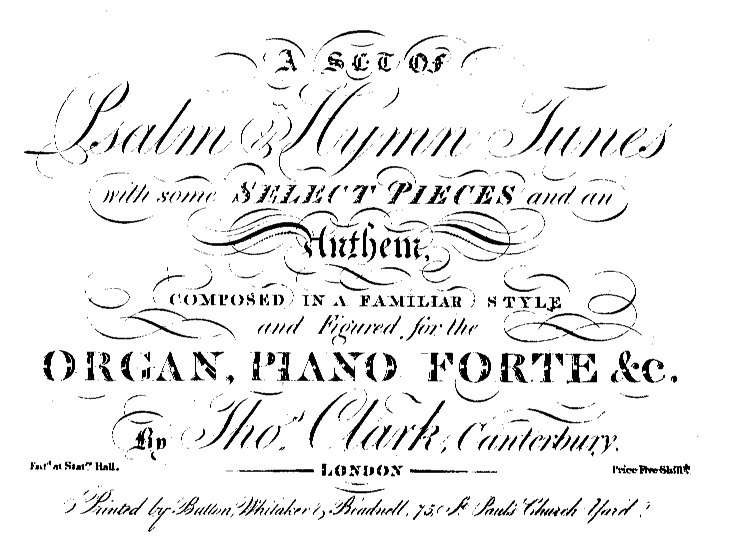 A SET OF
Psalm & Hymn Tunes
with some SELECT PIECES and an
Anthem,
COMPOSED IN A FAMILIAR STYLE
and Figured for the
ORGAN, PIANO FORTE &c.
By Thos. Clark, Canterbury.
Entd. at Statrs. Hall.
LONDON
Price Five Shills.
Printed by Button, Whitaker & Beadnell, 75, St. Paul's Church Yard